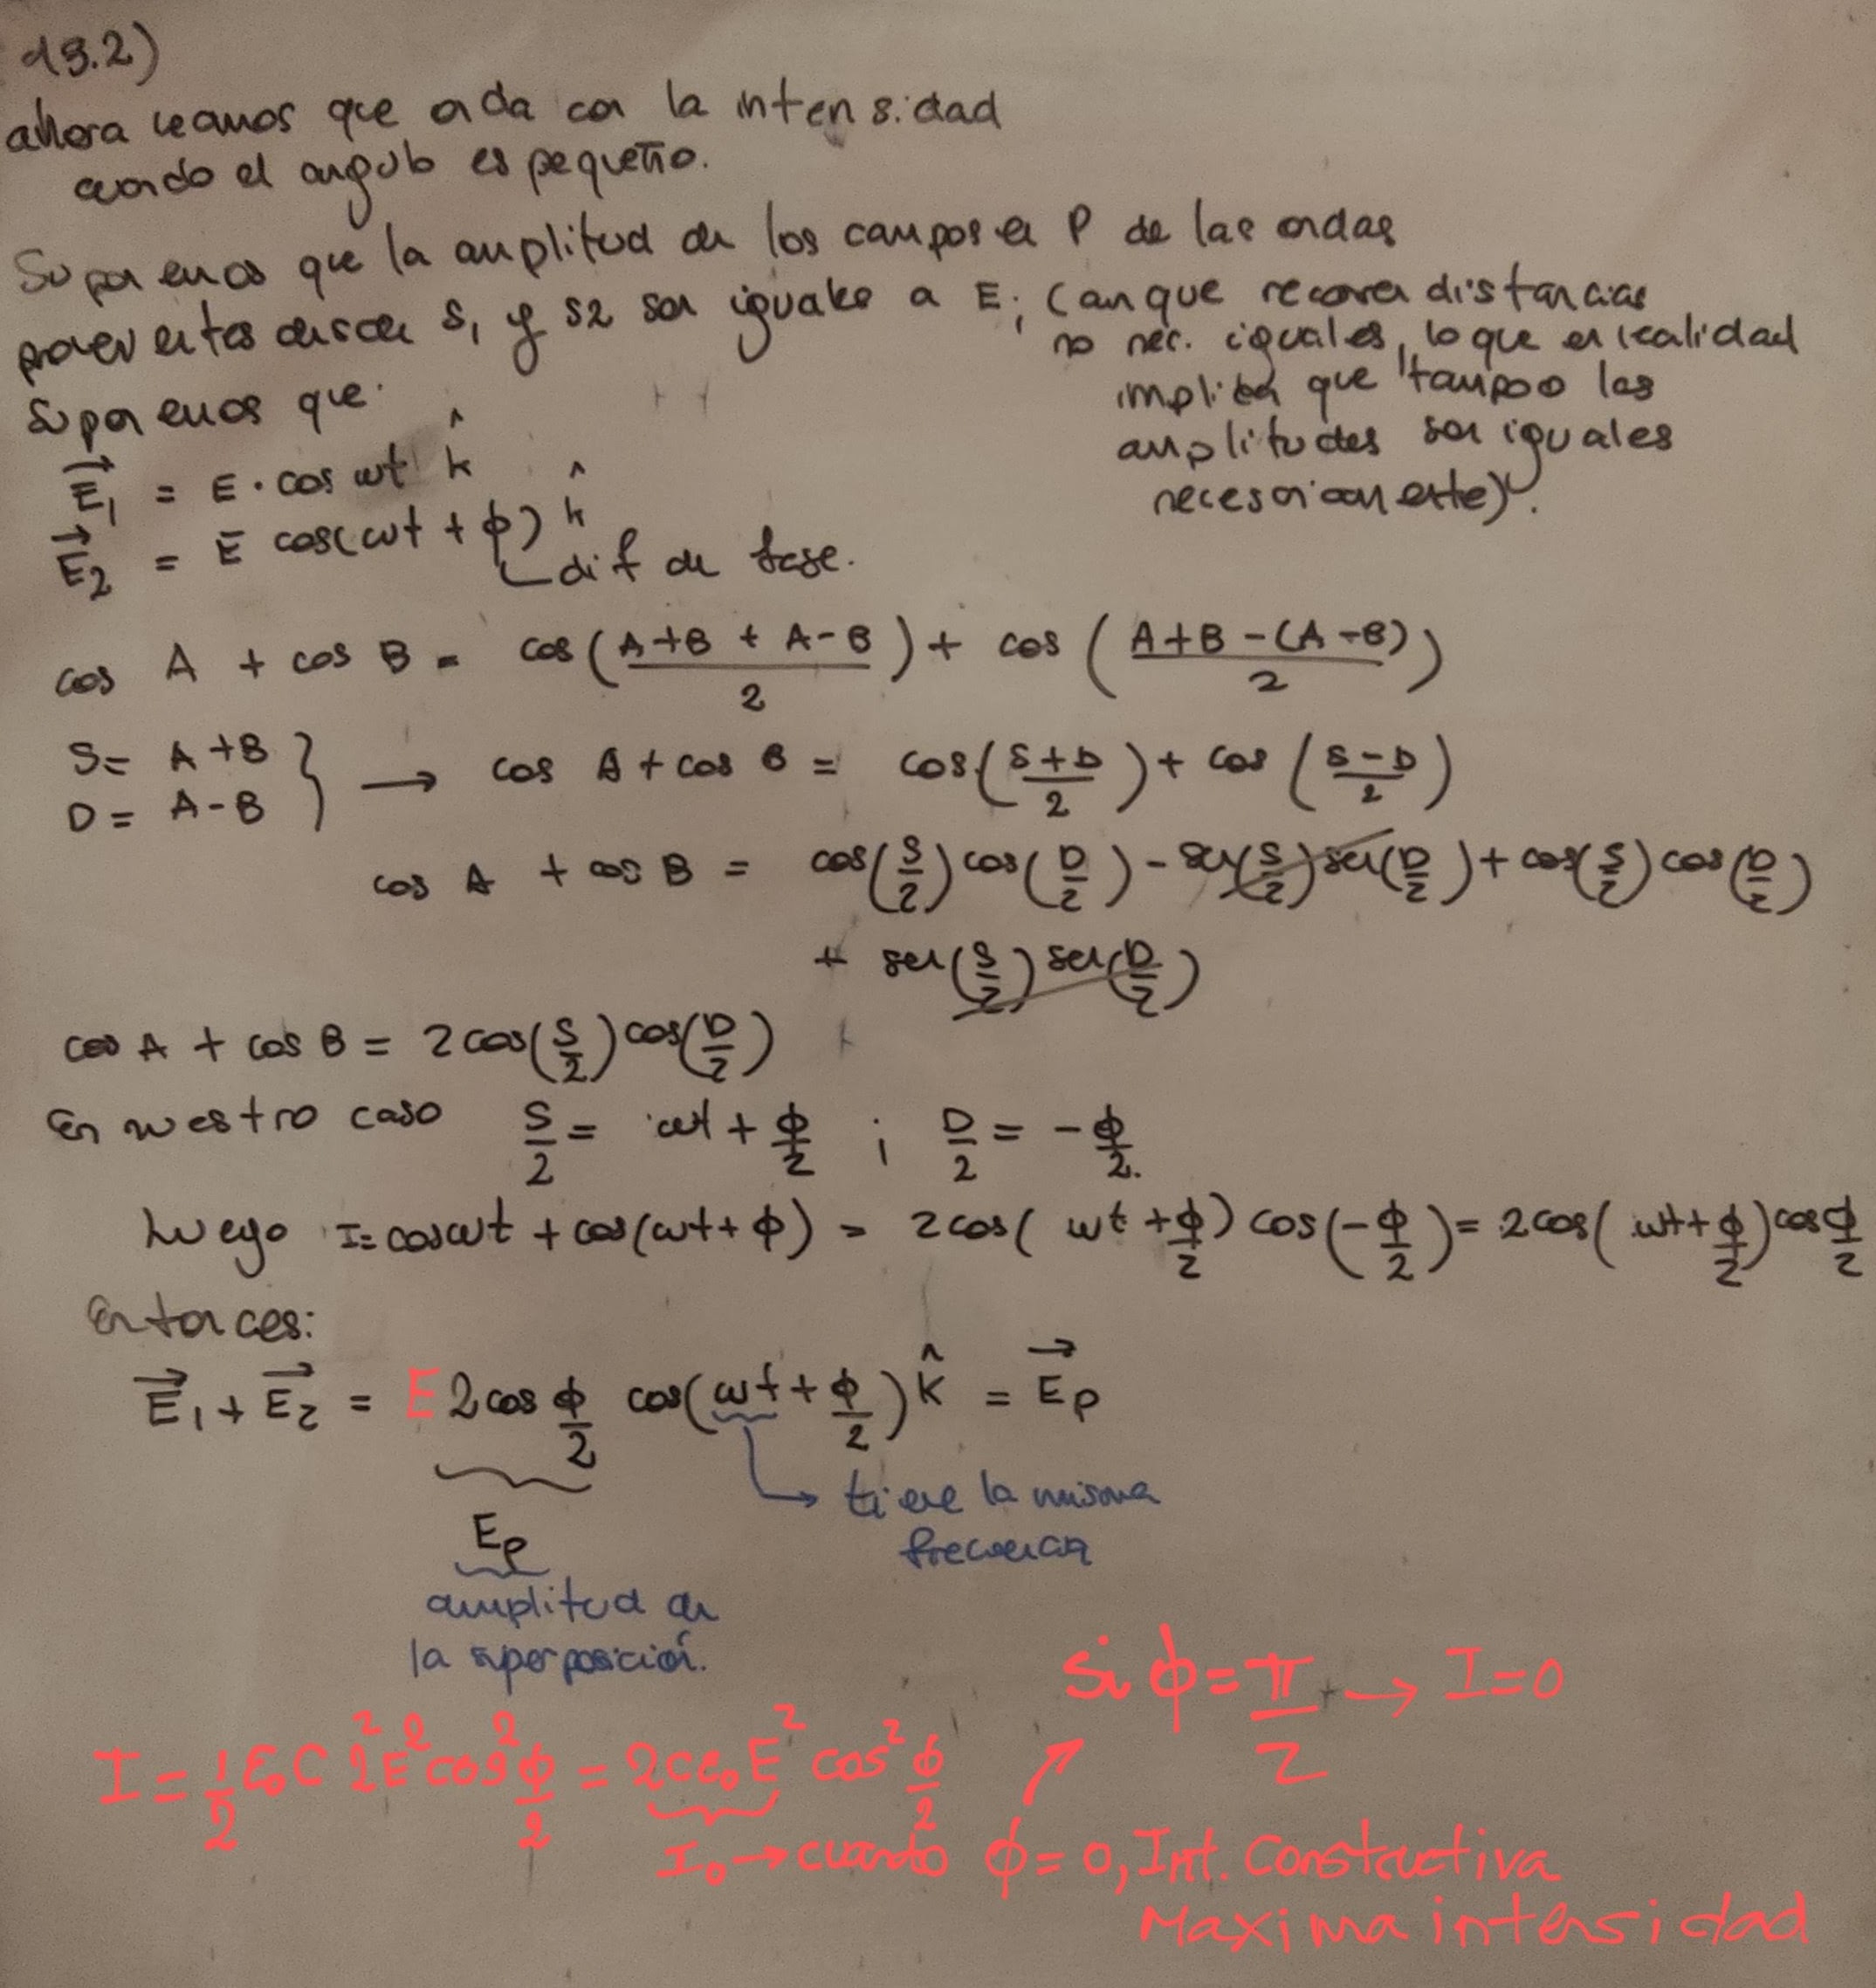 13.2)
ahora veamos que onda con la intensidad
cuando el angulo es pequeño.
Suponemos que la amplitud de los campos en P de las ondas
provenientes desde S₁ y S2 son iguales a E; (aunque recorren distancias
no nec. iguales, lo que en realidad
implica que tampoco las
amplitudes son iguales
necesariamente).
Suponemos que:
E⃗₁ = E · cos ωt k̂
E⃗₂ = E cos(ωt + ϕ) k̂
dif de fase.
cos A + cos B = cos((A+B + A-B)/2) + cos((A+B-(A-B))/2)
S = A+B
D = A-B } → cos A + cos B = cos((S+D)/2) + cos((S-D)/2)
cos A + cos B = cos(S/2) cos(D/2) - sen(S/2) sen(D/2) + cos(S/2) cos(D/2)
+ sen(S/2) sen(D/2)
cos A + cos B = 2 cos(S/2) cos(D/2)
En nuestro caso S/2 = ωt + ϕ/2 ; D/2 = -ϕ/2.
Luego I = cos ωt + cos(ωt + ϕ) = 2 cos(ωt + ϕ/2) cos(-ϕ/2) = 2 cos(ωt + ϕ/2) cos ϕ/2
Entonces:
E⃗₁ + E⃗₂ = E 2 cos ϕ/2 cos(ωt + ϕ/2) k̂ = E⃗p
tiene la misma
frecuencia
Ep
amplitud de
la superposición.
si ϕ = π/2 → I = 0
I = 1/2 ε₀ C 2² E² cos² ϕ/2 = 2 c ε₀ E² cos² ϕ/2
I₀ → cuando ϕ = 0, Int. Constructiva
Maxima intensidad